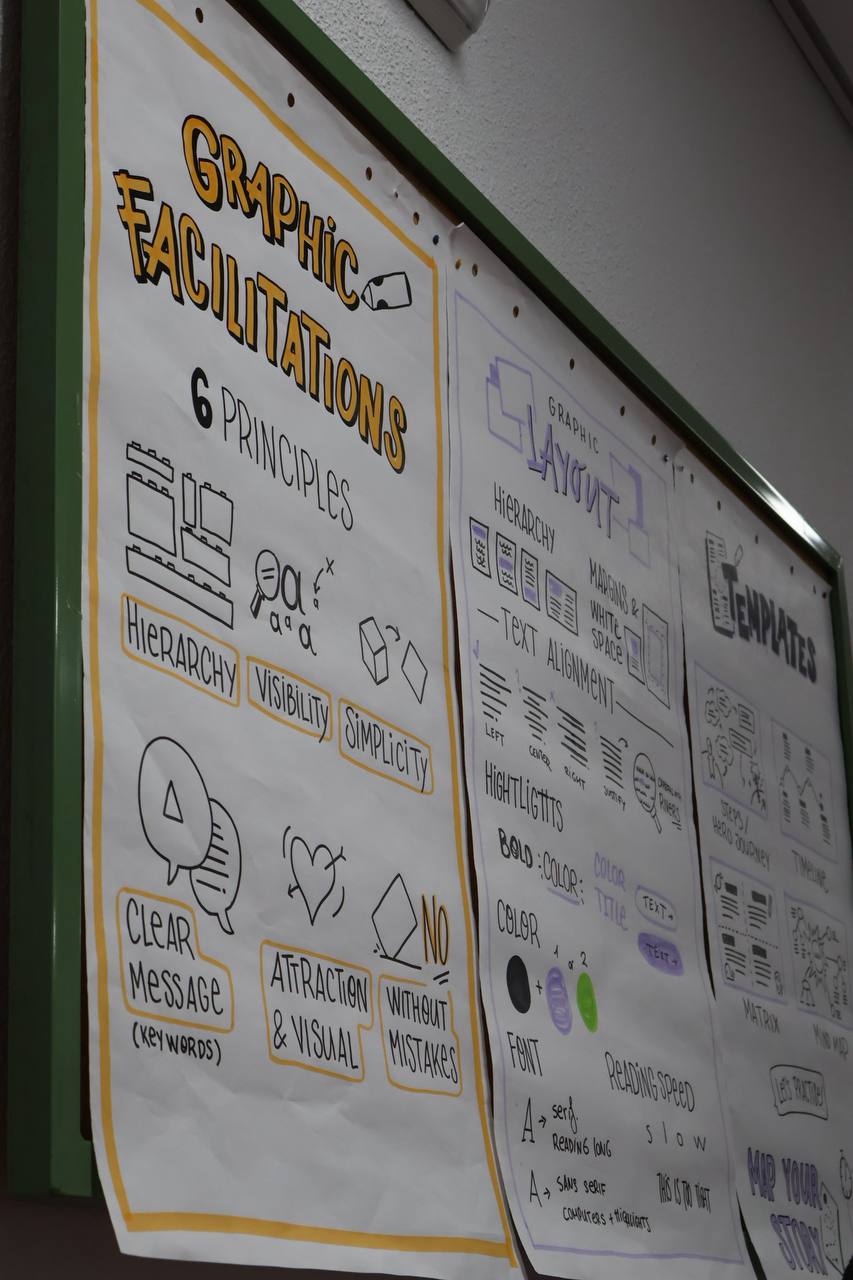 GRAPHIC
FACILITATIONS
6 PRINCIPLES
a
x
a a a
HIERARCHY
VISIBILITY
SIMPLICITY
CLEAR
MESSAGE
(KEYWORDS)
ATTRACTION
& VISUAL
NO
WITHOUT
MISTAKES
GRAPHIC
LAYOUT
HIERARCHY
MARGINS &
WHITE
SPACE
—TEXT ALIGNMENT—
LEFT
CENTER
RIGHT
JUSTIFY
RIVERS
HIGHTLIGTHTS
BOLD :COLOR:
COLOR
TITLE
TEXT
TEXT
COLOR
+ 1 or 2
FONT
A → serif
READING LONG
A → SANS SERIF
COMPUTERS + HIGHLIGHTS
READING SPEED
slow
THIS IS TOO TIGHT
TEMPLATES
STEPS/
HERO JOURNEY
TIMELINE
MATRIX
MIND MAP
LET'S PRACTISE!
MAP YOUR
STORY